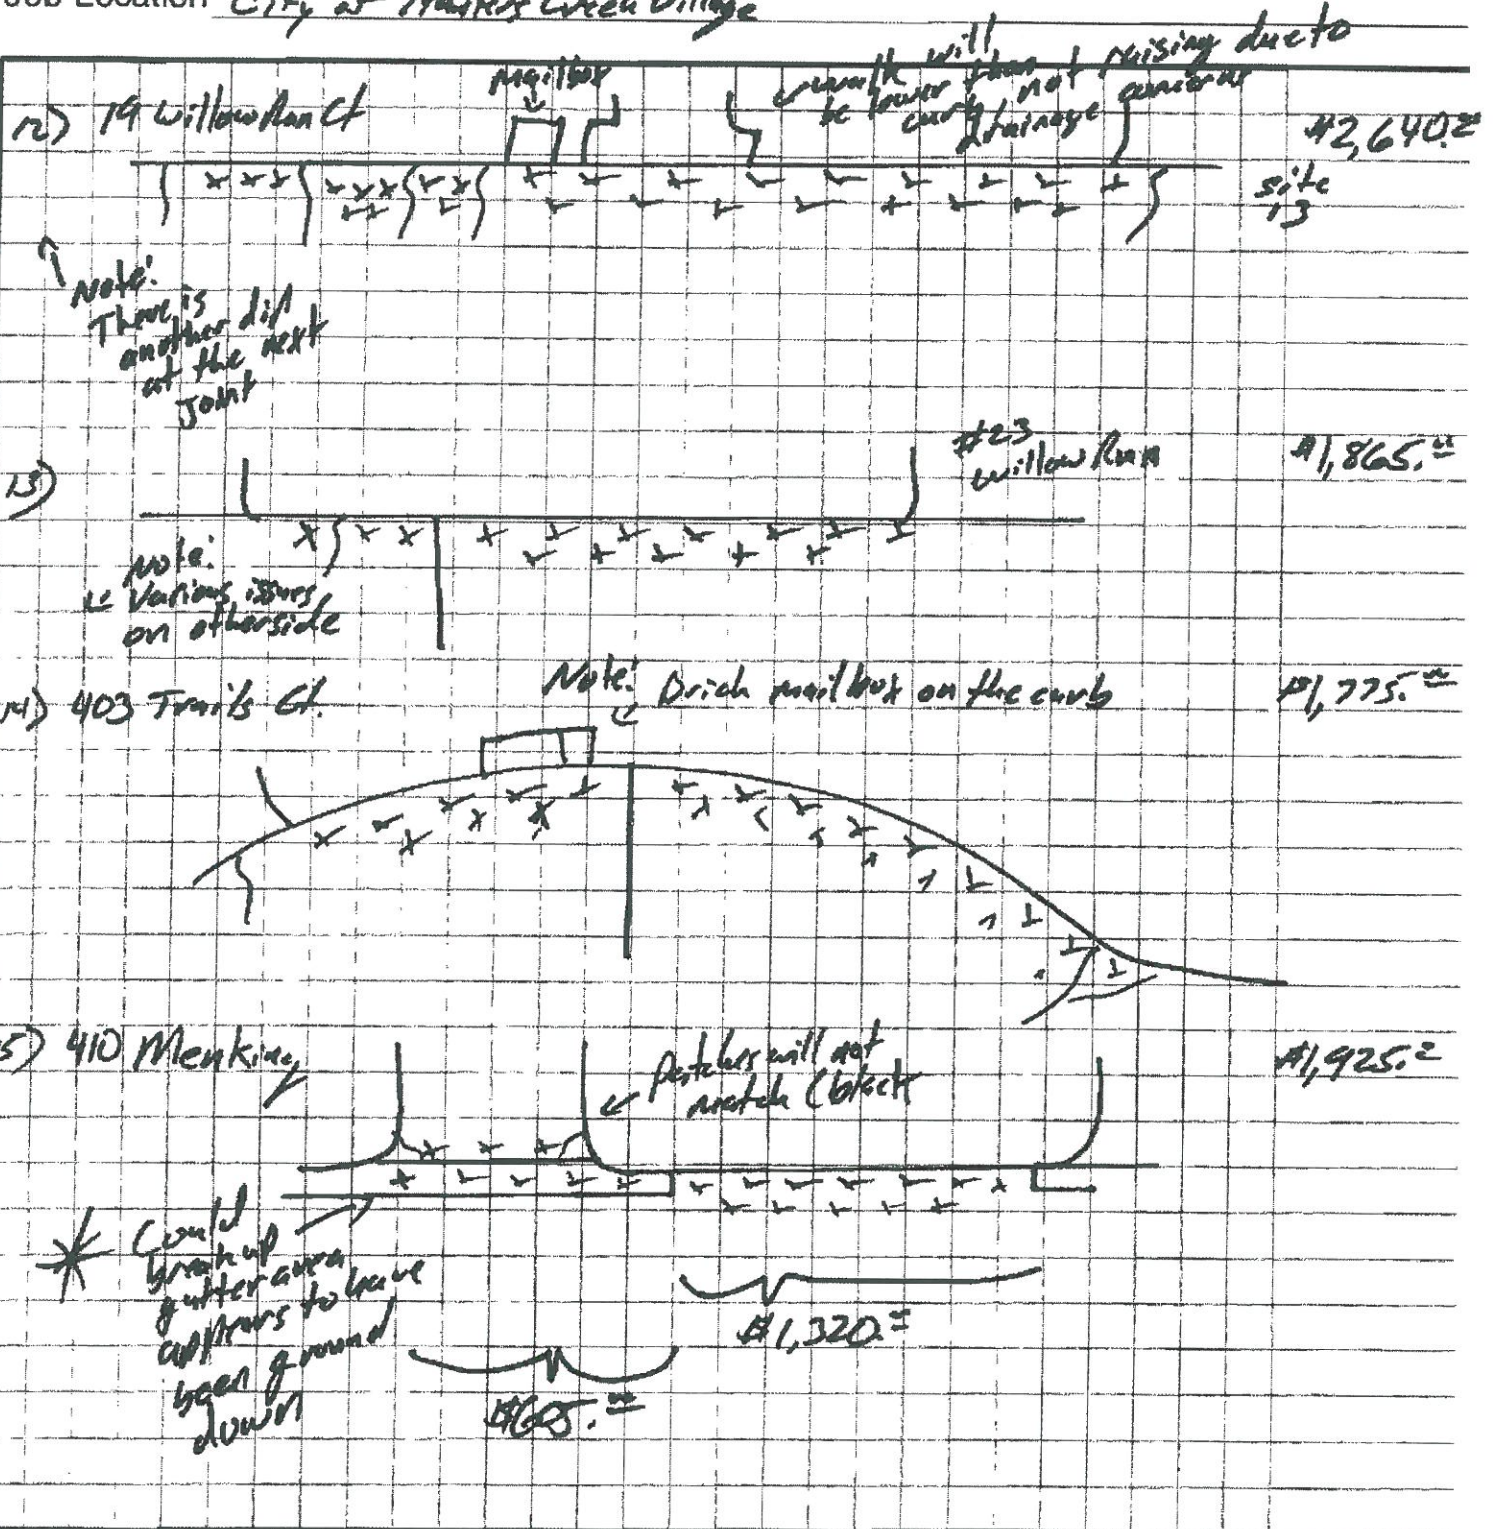 Job Location City of Hunters Creek Village
Mailbox
walk will
be lower than
curb not raising due to
drainage concerns
12) 19 Willow Run Ct
$2,640.00
site
13
Note:
There is
another dip
at the next
Joint
13)
#23
Willow Run
$1,865.00
Note:
Various issues
on otherside
14) 403 Trails Ct.
Note: Brick mailbox on the curb
$1,775.00
5) 410 Menking
Patches will not
match (black
$1,925.00
Could
break up
gutter area
appears to have
been ground
down
$1,320.00
$605.00